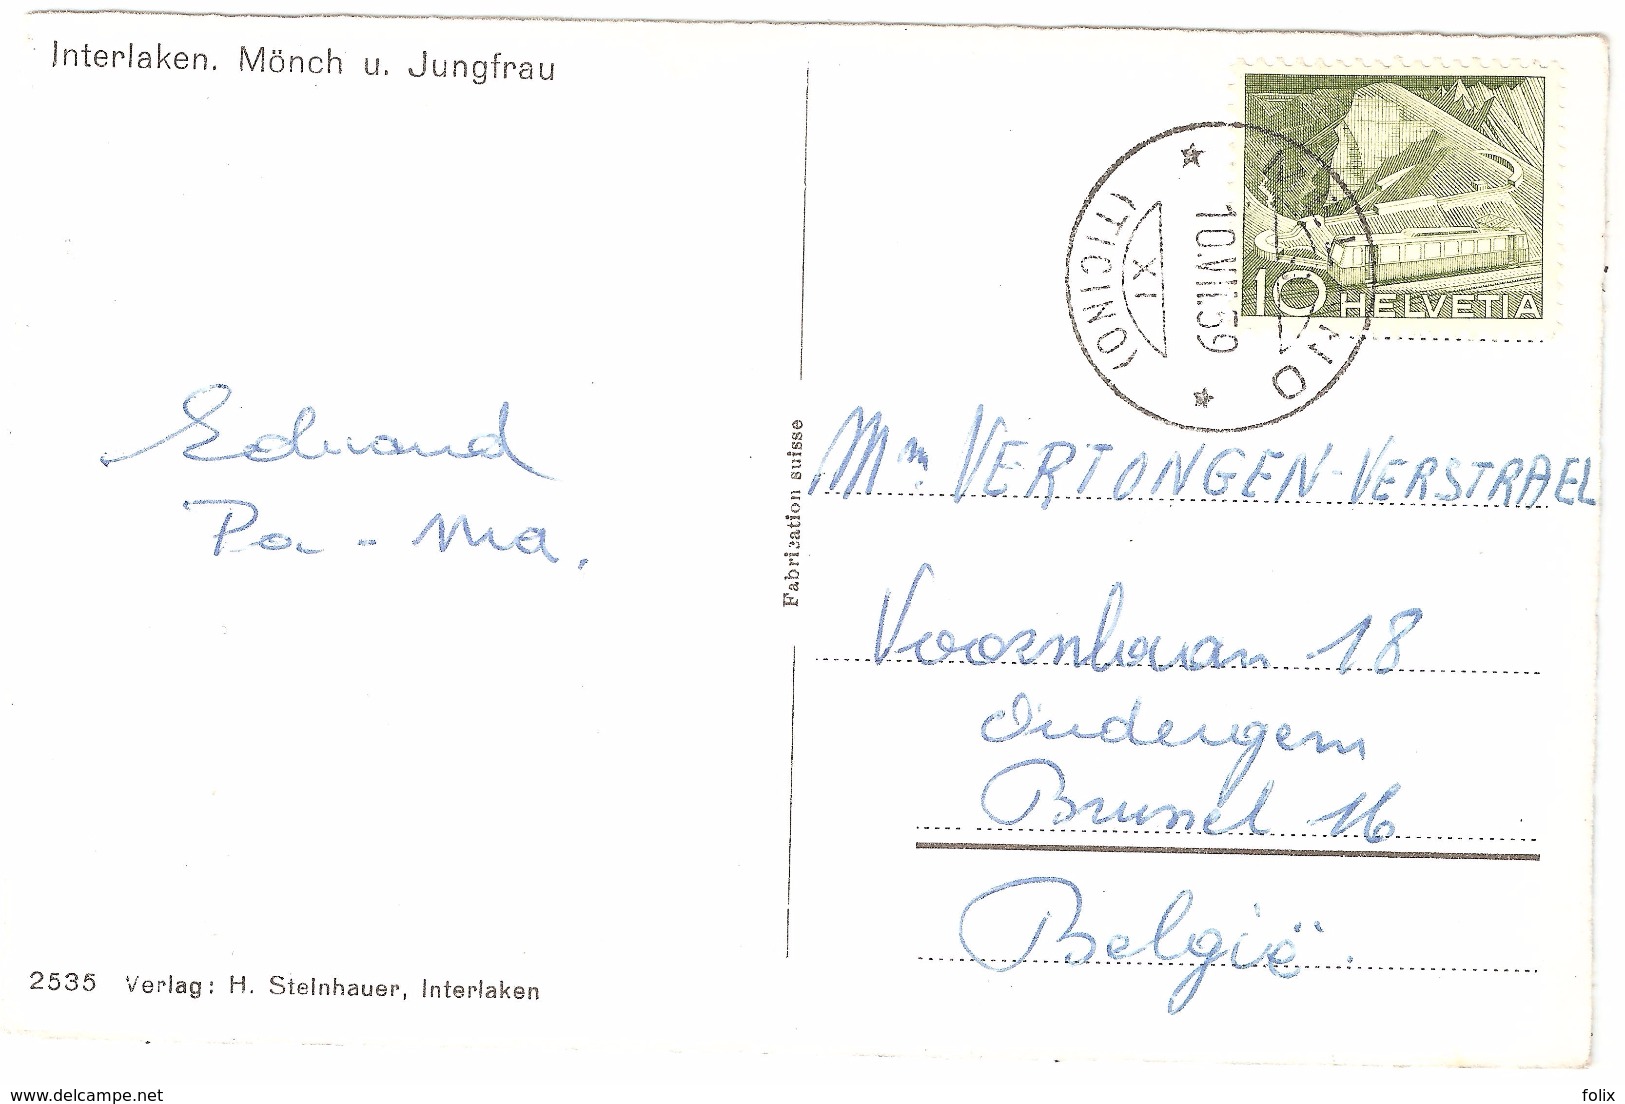 Interlaken. Mönch u. Jungfrau
10 HELVETIA
(TICINO)
XI
10.VII.59
Edward
Pa - Ma.
Fabrication suisse
Mm VERTONGEN-VERSTRAEL
Voornlaan 18
Oudergem
Brussel 16
België.
2535 Verlag: H. Steinhauer, Interlaken
www.delcampe.net
folix